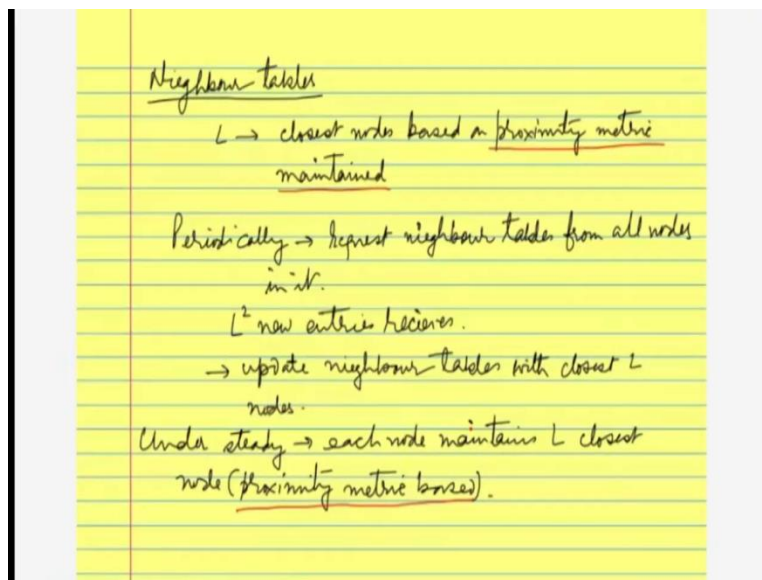 Nieghbour tables
L → closest nodes based on proximity metric
maintained
Periodically → request nieghbour tables from all nodes
in it.
L² new entries recieves.
→ update nieghbour tables with closest L
nodes.
Under steady → each node maintains L closest
node (proximity metric based).